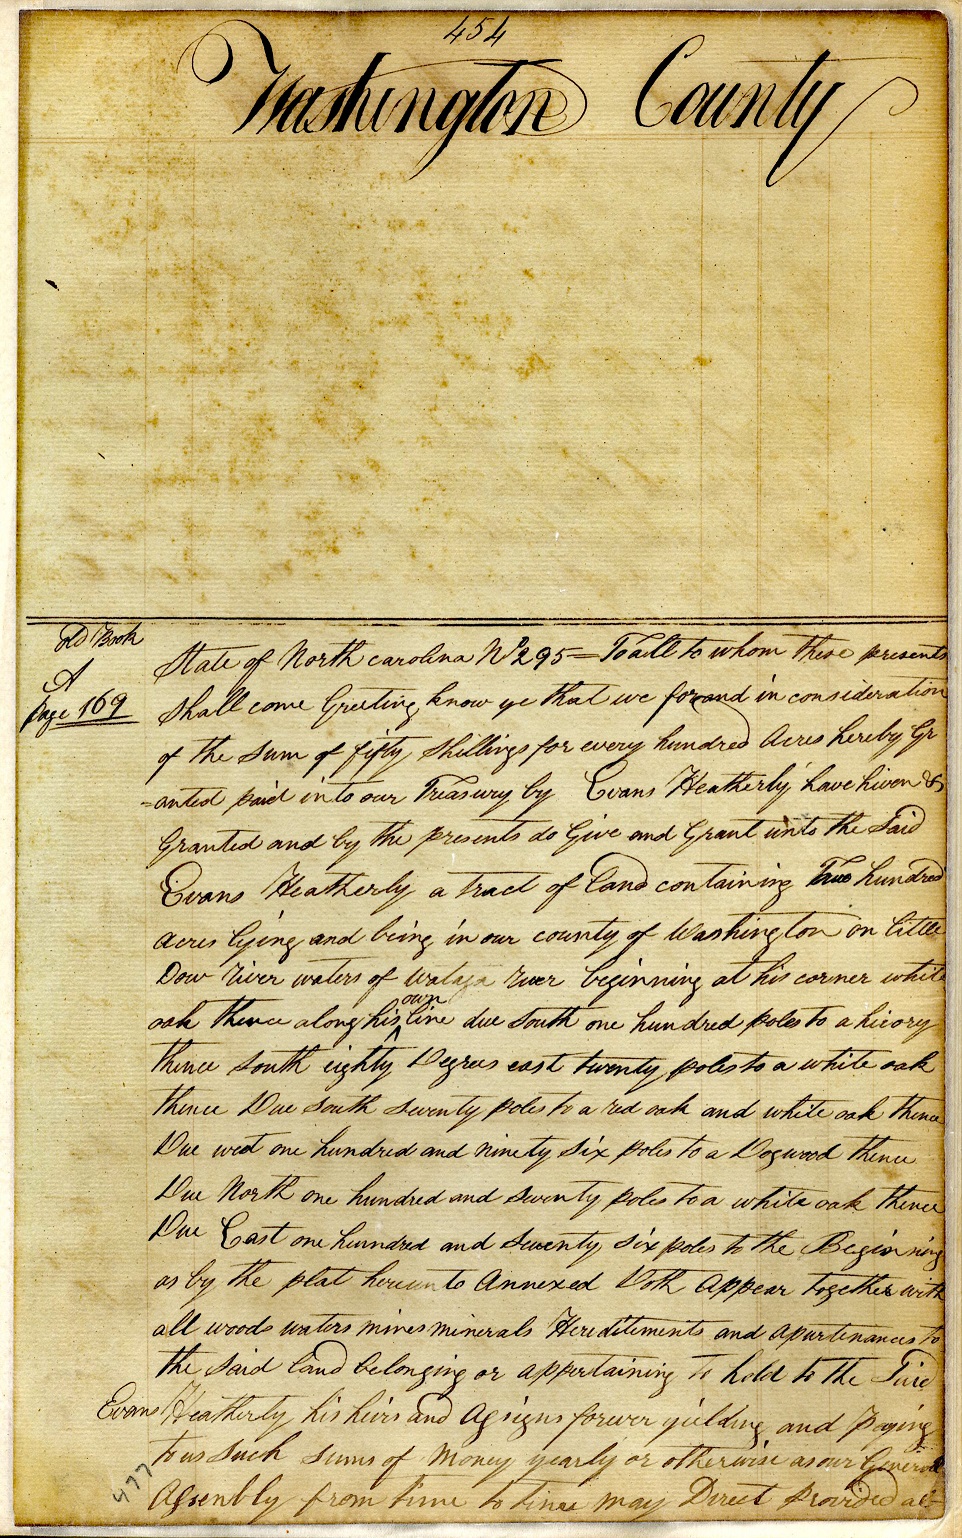 454
Washington County
Old Book
A
Page 169
State of North carolina No 295 = To all to whom these presents
Shall come Greeting know ye that we for and in consideration
of the Sum of fifty Shillings for every hundred Acres hereby Gr
-anted paid into our Treasury by Evans Heatherly have hiven &
Granted and by the presents do Give and Grant unto the Said
Evans Heatherly a tract of Land containing Two hundred
acres lying and being in our county of Washington on Little
Dow River waters of Wataga River beginning at his corner white
oak thence along his own line due South one hundred poles to a hicory
thence South eighty Degrees east twenty poles to a white oak
thence Due South Seventy poles to a red oak and white oak thence
Due west one hundred and ninety Six poles to a Dogwood thence
Due North one hundred and Seventy poles to a white oak thence
Due East one hundred and Seventy Six poles to the Beginning
as by the plat hereunto Annexed Doth Appear together with
all woods waters mines minerals Hereditements and apurtenances to
the Said Land belonging or appertaining to hold to the Said
Evans Heatherly his heirs and Assigns forever yielding and Paying
to us Such Sums of Money yearly or otherwise as our General
Assenbly from time to time may Direct provided al-
477